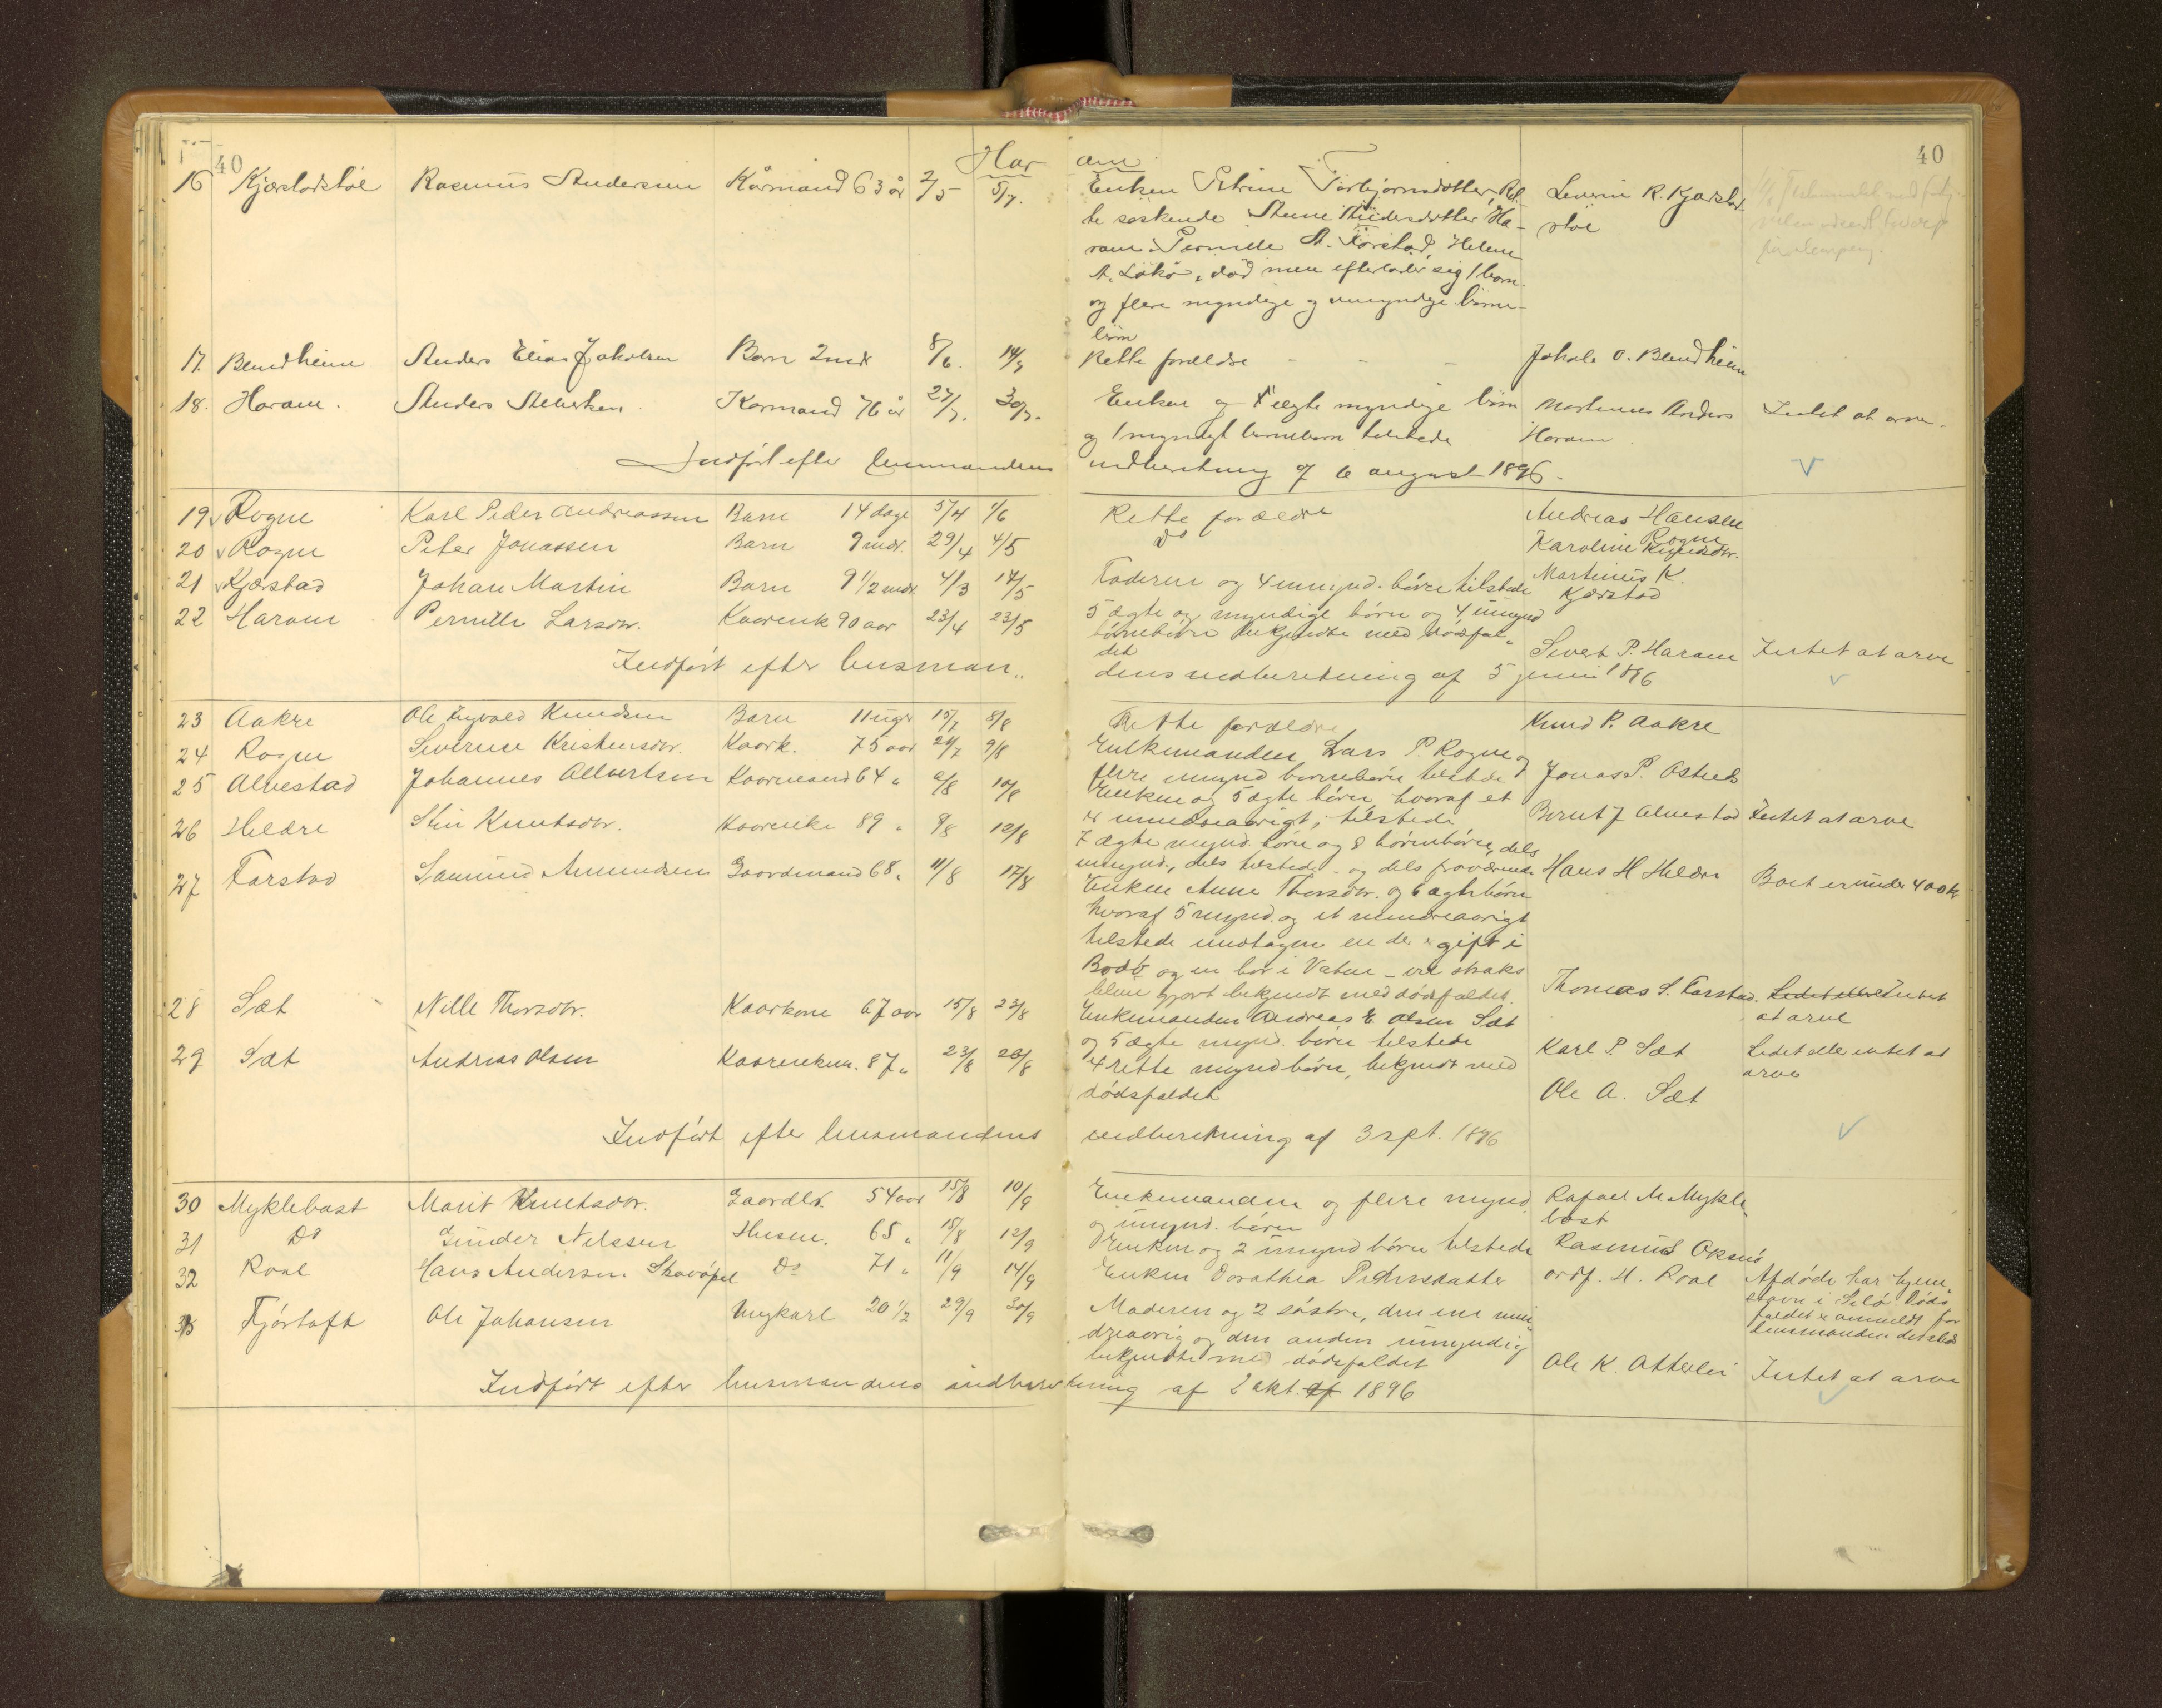 40
40
Har am
16 Kjærstadstøl Rasmus Andersen Kårmand 63 år 2/5 5/7. Enken Petrine Torbjørnsdotter, Ret- Severin R. Kjærstad
te søskende Anne Andersdotter Ha- støl
ram. Pernille A. Farstad, Helene
A. Løkø, død men efterlader sig 1 barn
og flere myndige og umyndige børne-
børn
17. Blindheim Anders Elias Jakobsen Barn 2 md 8/6. 14/7 Rette forældre - - - Jakob O. Blindheim
18. Haram. Anders Kårmand 76 år 27/7. 30/7. Enken og ægte myndige børn Martinus Anders Intet at arve.
og 1 myndigt barnebarn tilstede Haram
Indført efter lensmandens indberetning af 6 august 1896.
19 Rogne Karl Peder Andreassen Barn 14 dage 5/4 1/6 Rette forældre Andreas Hansen
Rogne
20 Rogne Peter Jonassen Barn 9 mdr. 29/4 4/5 Do Karoline Knudsdtr.
21 Kjærstad Johan Martin Barn 9 1/2 mdr. 4/3 17/5 Faderen og 4 umynd. børn tilstede Martinus K.
Kjærstad
22 Haram Pernille Larsdtr. Kaarenk 90 aar 23/4 23/5 5 ægte og myndige børn og 4 umynd
børnebørn bekjendte med dødsfal-
det Sivert P. Haram Intet at arve
Indført efter lensman- dens indberetning af 5 juni 1896
23 Aakre Ole Ingvald Knudsen Barn 11 uger 15/7 8/8 Rette forældre Knud P. Aakre
24 Rogne Severine Kristensdtr. Kaark. 75 aar 29/7 9/8 Enkemanden Lars P. Rogne og
flere umynd børnebørn tilstede Jonas P. Østreb
25 Alvestad Johannes Albertsen Kaarmand 64 " 2/8 10/8 Enken og 5 ægte børn, hvoraf et
er mindreaarigt, tilstede Bernt J Alvestad Intet at arve
26 Hildre Stin Knutsdtr. Kaarenke 89 " 9/8 12/8 7 ægte mynd. børn og 8 børnebørn, dels
umynd., dels tilstede og dels fraværende Hans H Hildre Boet er under 400 kr
27 Farstad Samund Amundsen Gaardmand 68 " 11/8 17/8 Enken Anne Thorsdtr. og 6 ægte børn
hvoraf 5 mynd. og et mindreaarigt
tilstede undtagen en der er gift i
Bodø og en bor i Vatne - vil straks
blive gjort bekjendt med dødsfaldet. Thomas S. Farstad. Lidet eller Intet
at arve
28 Sæt Nille Thorsdtr. Kaarkone 67 aar 15/8 23/8 Enkemanden Andreas E. Olsen Sæt
og 5 ægte mynd. børn tilstede Karl P. Sæt Lidet eller intet at
arve
29 Sæt Andreas Olsen Kaarenkem. 87 " 23/8 28/8 4 rette mynd børn, bekjendt med
dødsfaldet Ole A. Sæt
Indført efter lensmandens indberetning af 3 sept. 1896
30 Myklebast Marit Knutsdtr. Gaardbr. 54 aar 15/8 10/9 Enkemanden og flere mynd. Rafael M Mykle-
og umynd. børn bast
31 Do Gunder Nilssen Husm. 65 " 15/8 12/9 Enken og 2 umynd børn tilstede Rasmus Oksnes
32 Roal Hans Andersen Do 71 " 11/9 14/9 Enken Dorathea Pedersdatter ordf. H. Roal Afdøde har hjem
stavn i Døds
faldet er anmeldt for
lensmanden dersteds
33 Fjørtoft Ole Johansen Ungkarl 20 1/2 29/9 30/9 Moderen og 2 søstre, den ene min-
dreaarig og den anden umyndig
bekjendte med dødsfaldet Ole K. Atterlei Intet at arve
Indført efter lensmandens indberetning af 2 okt. af 1896